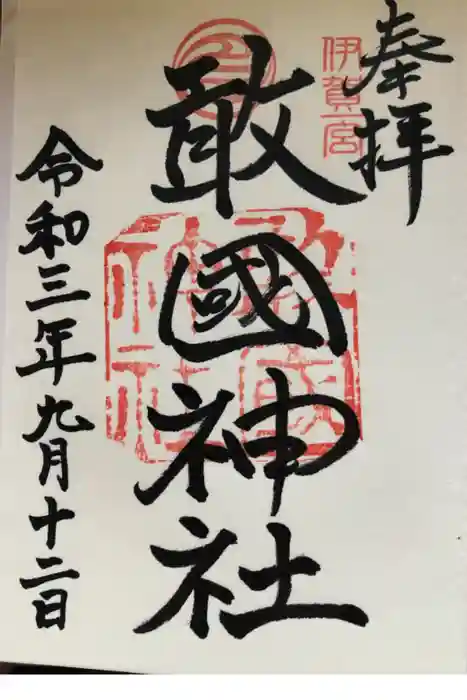 奉拝
伊賀一宮
敢國神社
令和三年九月十二日